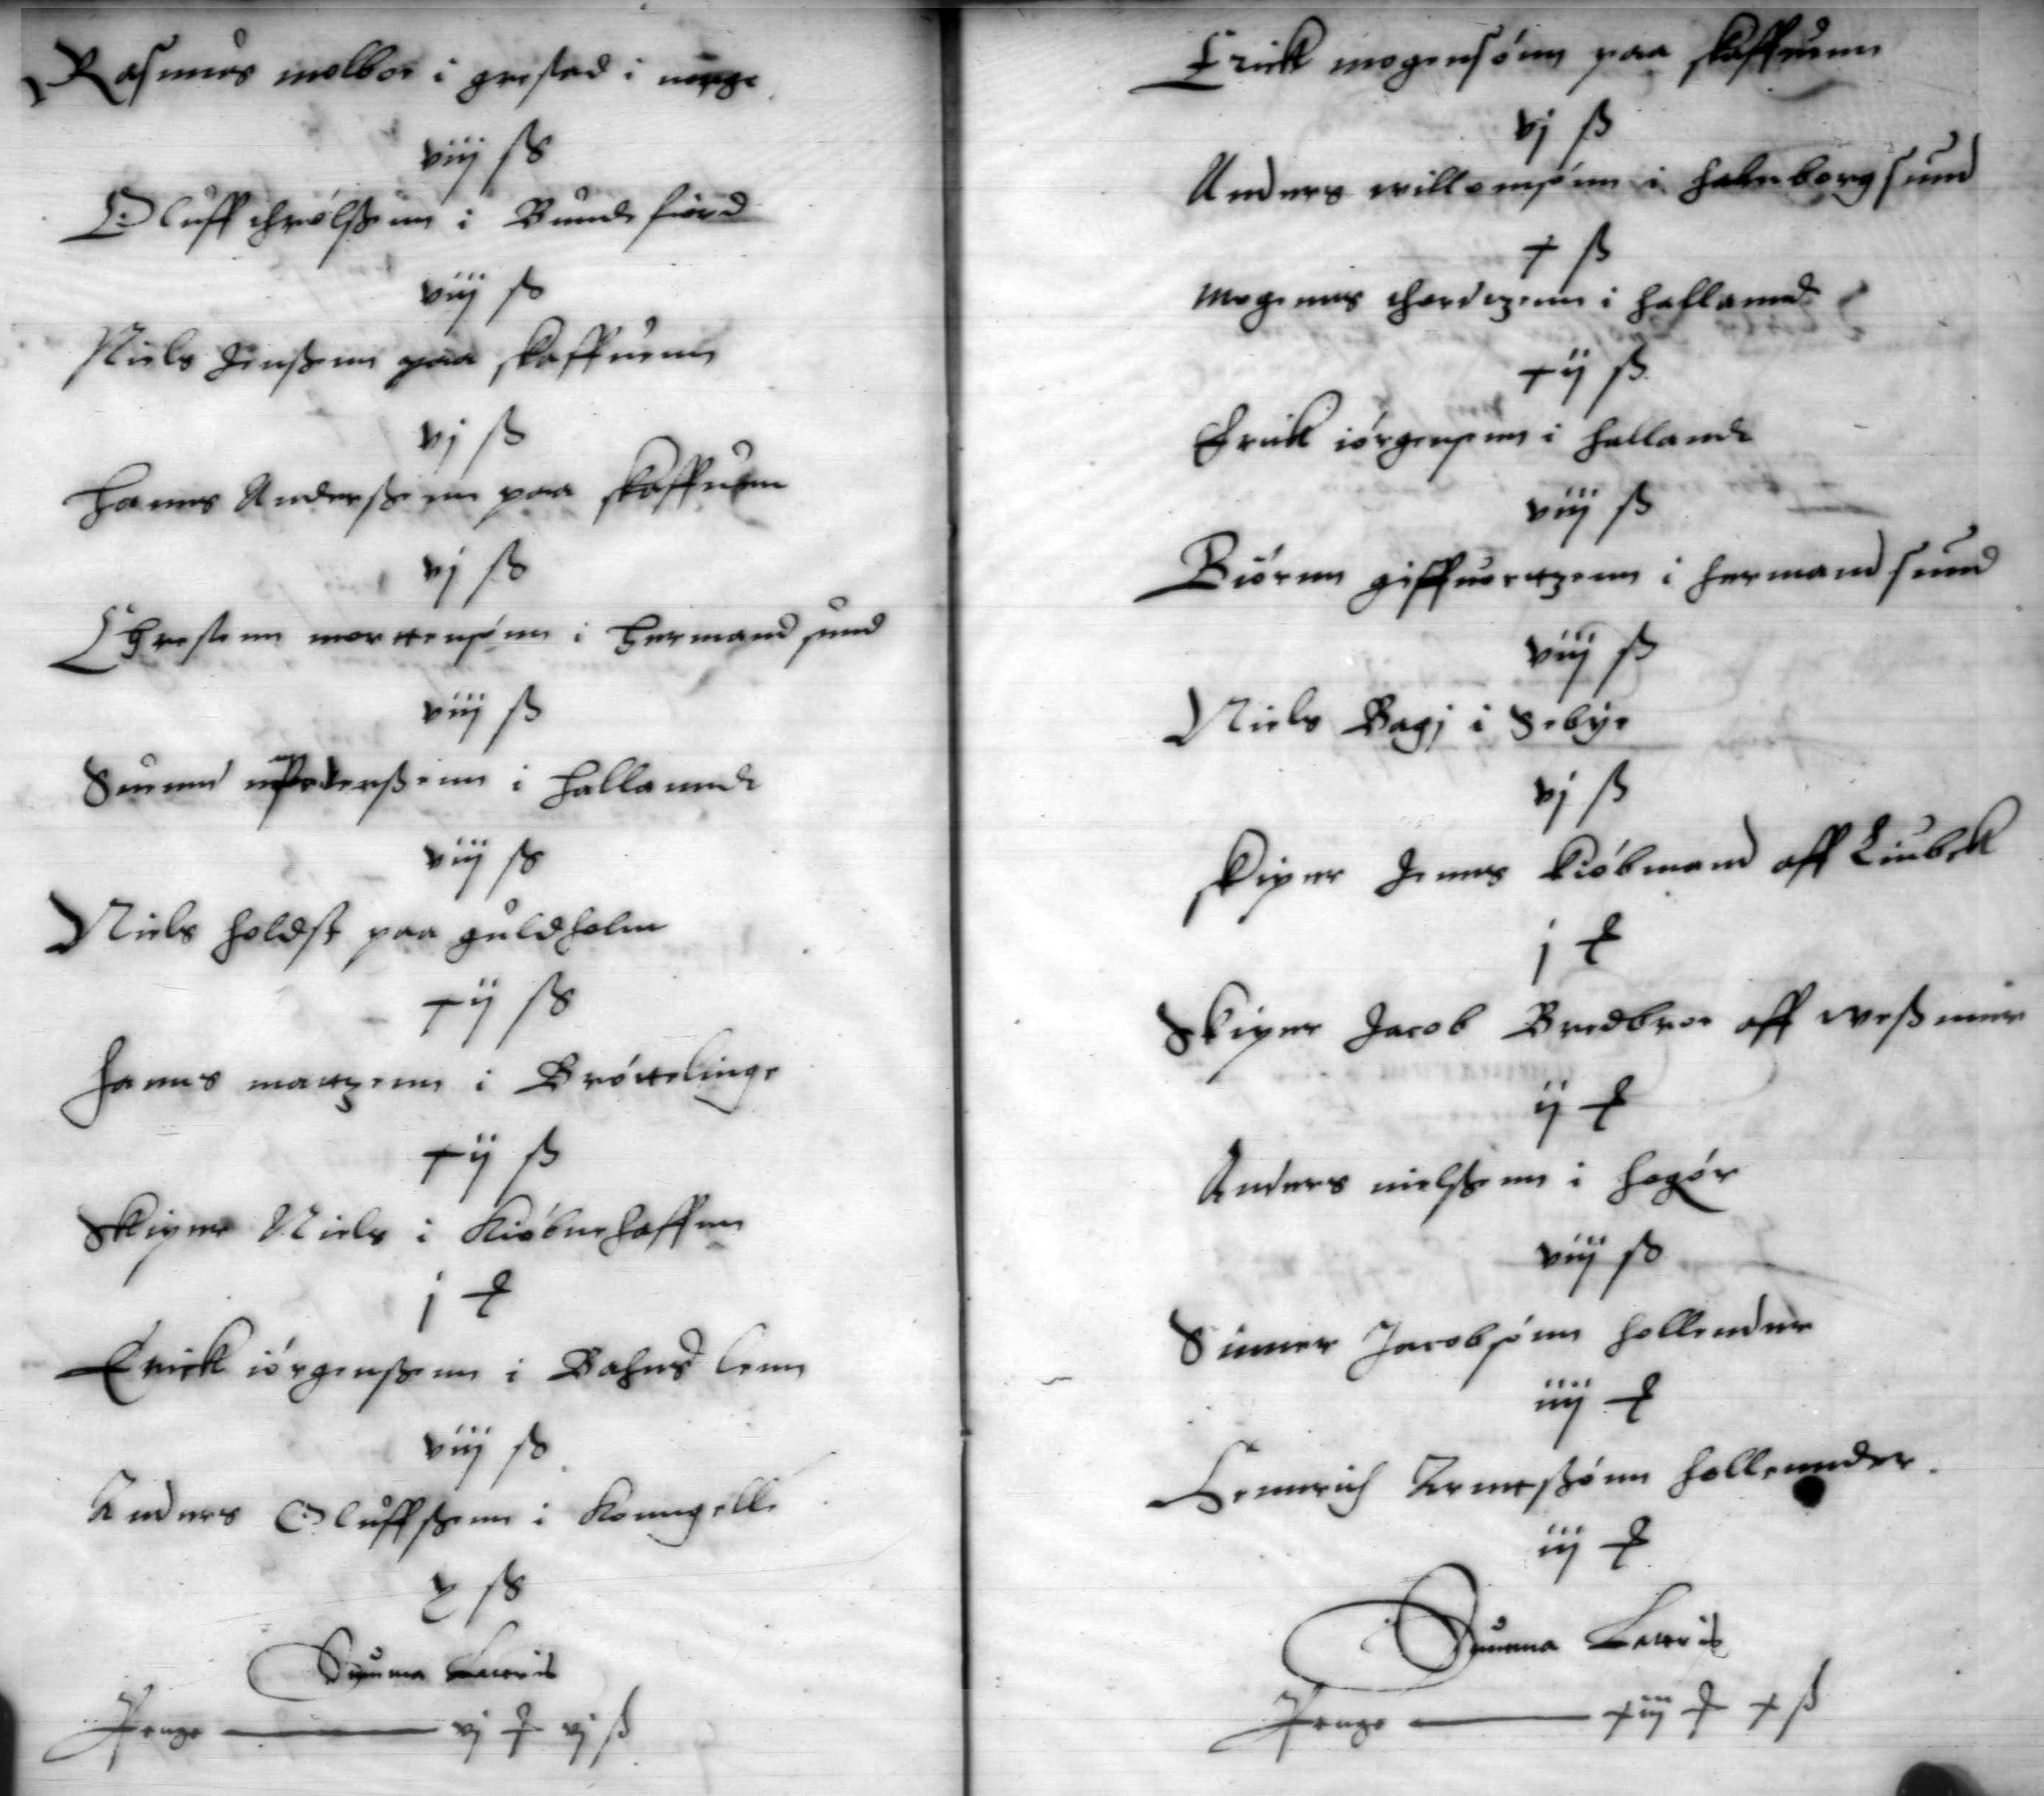 Rasmus molboe i grested i norge
viij ß
Oluff thrølßenn i Bundefiord
viij ß
Niels Jenßenn paa skaffuenn
vj ß
Hanns Anderßenn paa skaffuenn
vj ß
Chrestenn mortensønn i Hermandsund
viij ß
Suennd Pederßenn i Hallannde
viij ß
Niels holdst paa guldholm
xij ß
Hanns mattzenn i Brøttelinge
xij ß
Skiper Niels i Kiøbnehaffuen
j ₰
Erick iørgenßenn i Bahus lenn
viij ß
Anders Oluffßenn i Konngelle
x ß
Summa Lateris
Penge vj ₰ vj ß
Erick mogensønn paa skaffuenn
vj ß
Anders willomsønn i halnborgsund
x ß
Mogenns thordtzenn i hallannd
xij ß
Erick iørgensenn i hallande
viij ß
Biørnn giffuertzenn i hermandsund
viij ß
Niels Bagj i Sebye
vj ß
Skiper Jenns kiøbmand aff Liubek
j ₰
Skiper Jacob Bredbroe aff weßmer
ij ₰
Anders nielßenn i
viij ß
Jacobsønn hollender
iiij ₰
Hennrich Arntßønn hollennder
iij ₰
Summa Lateris
Penge xiij ₰ x ß